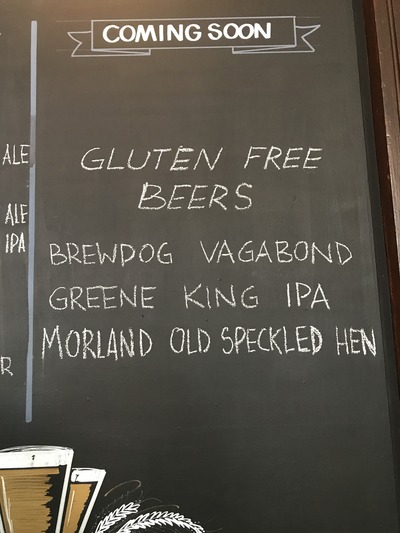 COMING SOON
GLUTEN FREE
BEERS
BREWDOG VAGABOND
GREENE KING IPA
MORLAND OLD SPECKLED HEN
ALE
ALE
IPA
R